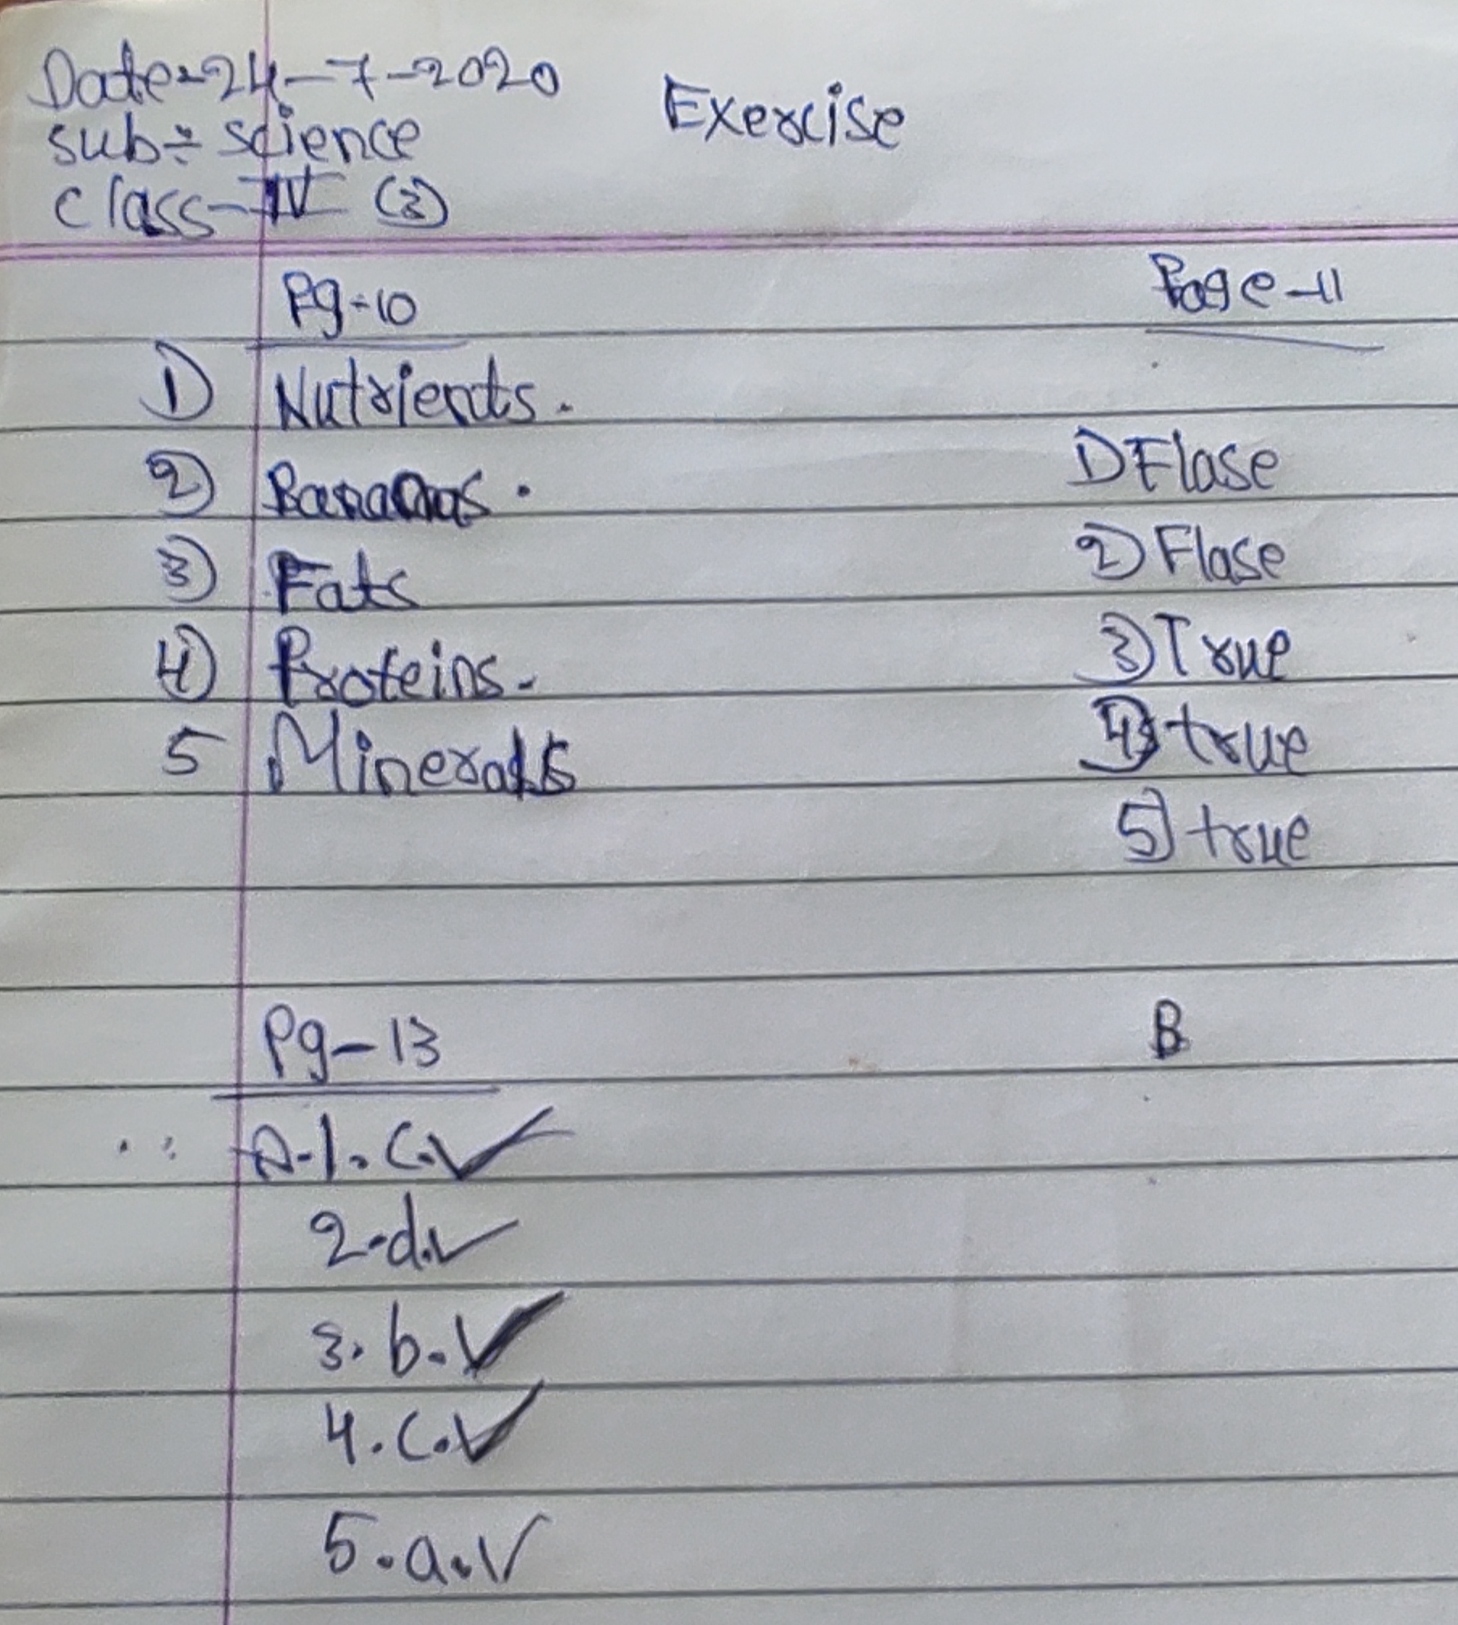 Date-24-7-2020
Exercise
sub÷ science
Class-IV (3)
Pg-10
1) Nutrients.
2) Bananas.
3) Fats
4) Proteins.
5 Minerals
Page-11
1) Flase
2) Flase
3) True
4) true
5) true
Pg-13
A-1. c. ✓
2-d. ✓
3. b. ✓
4. c. ✓
5. a. ✓
B